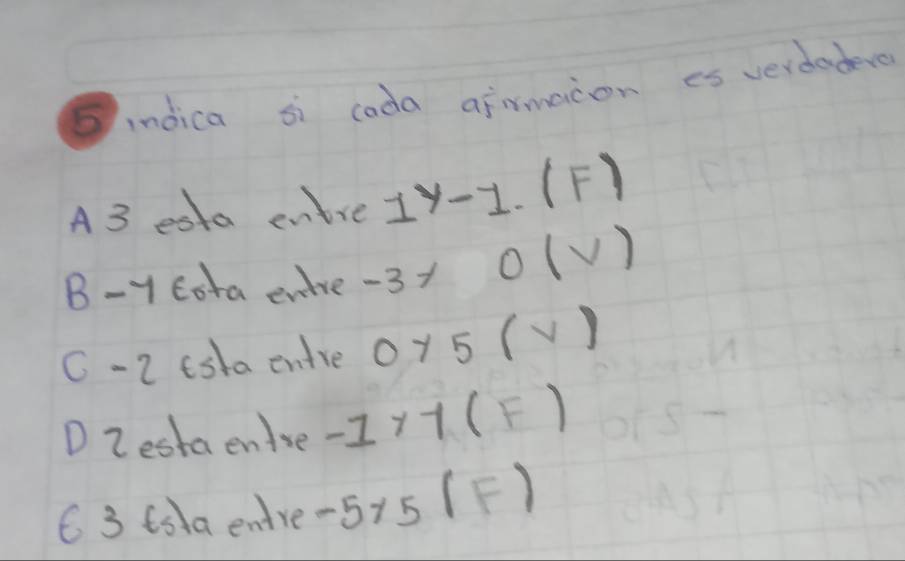 5 indica si cada afirmacion es verdadera
A 3 esta entre 1 y -1. (F)
B -1 Esta entre -3 y 0 (V)
C -2 Esta entre 0 y 5 (V)
D 2 esta entre -1 y 1 (F)
E 3 Esta entre -5 y 5 (F)